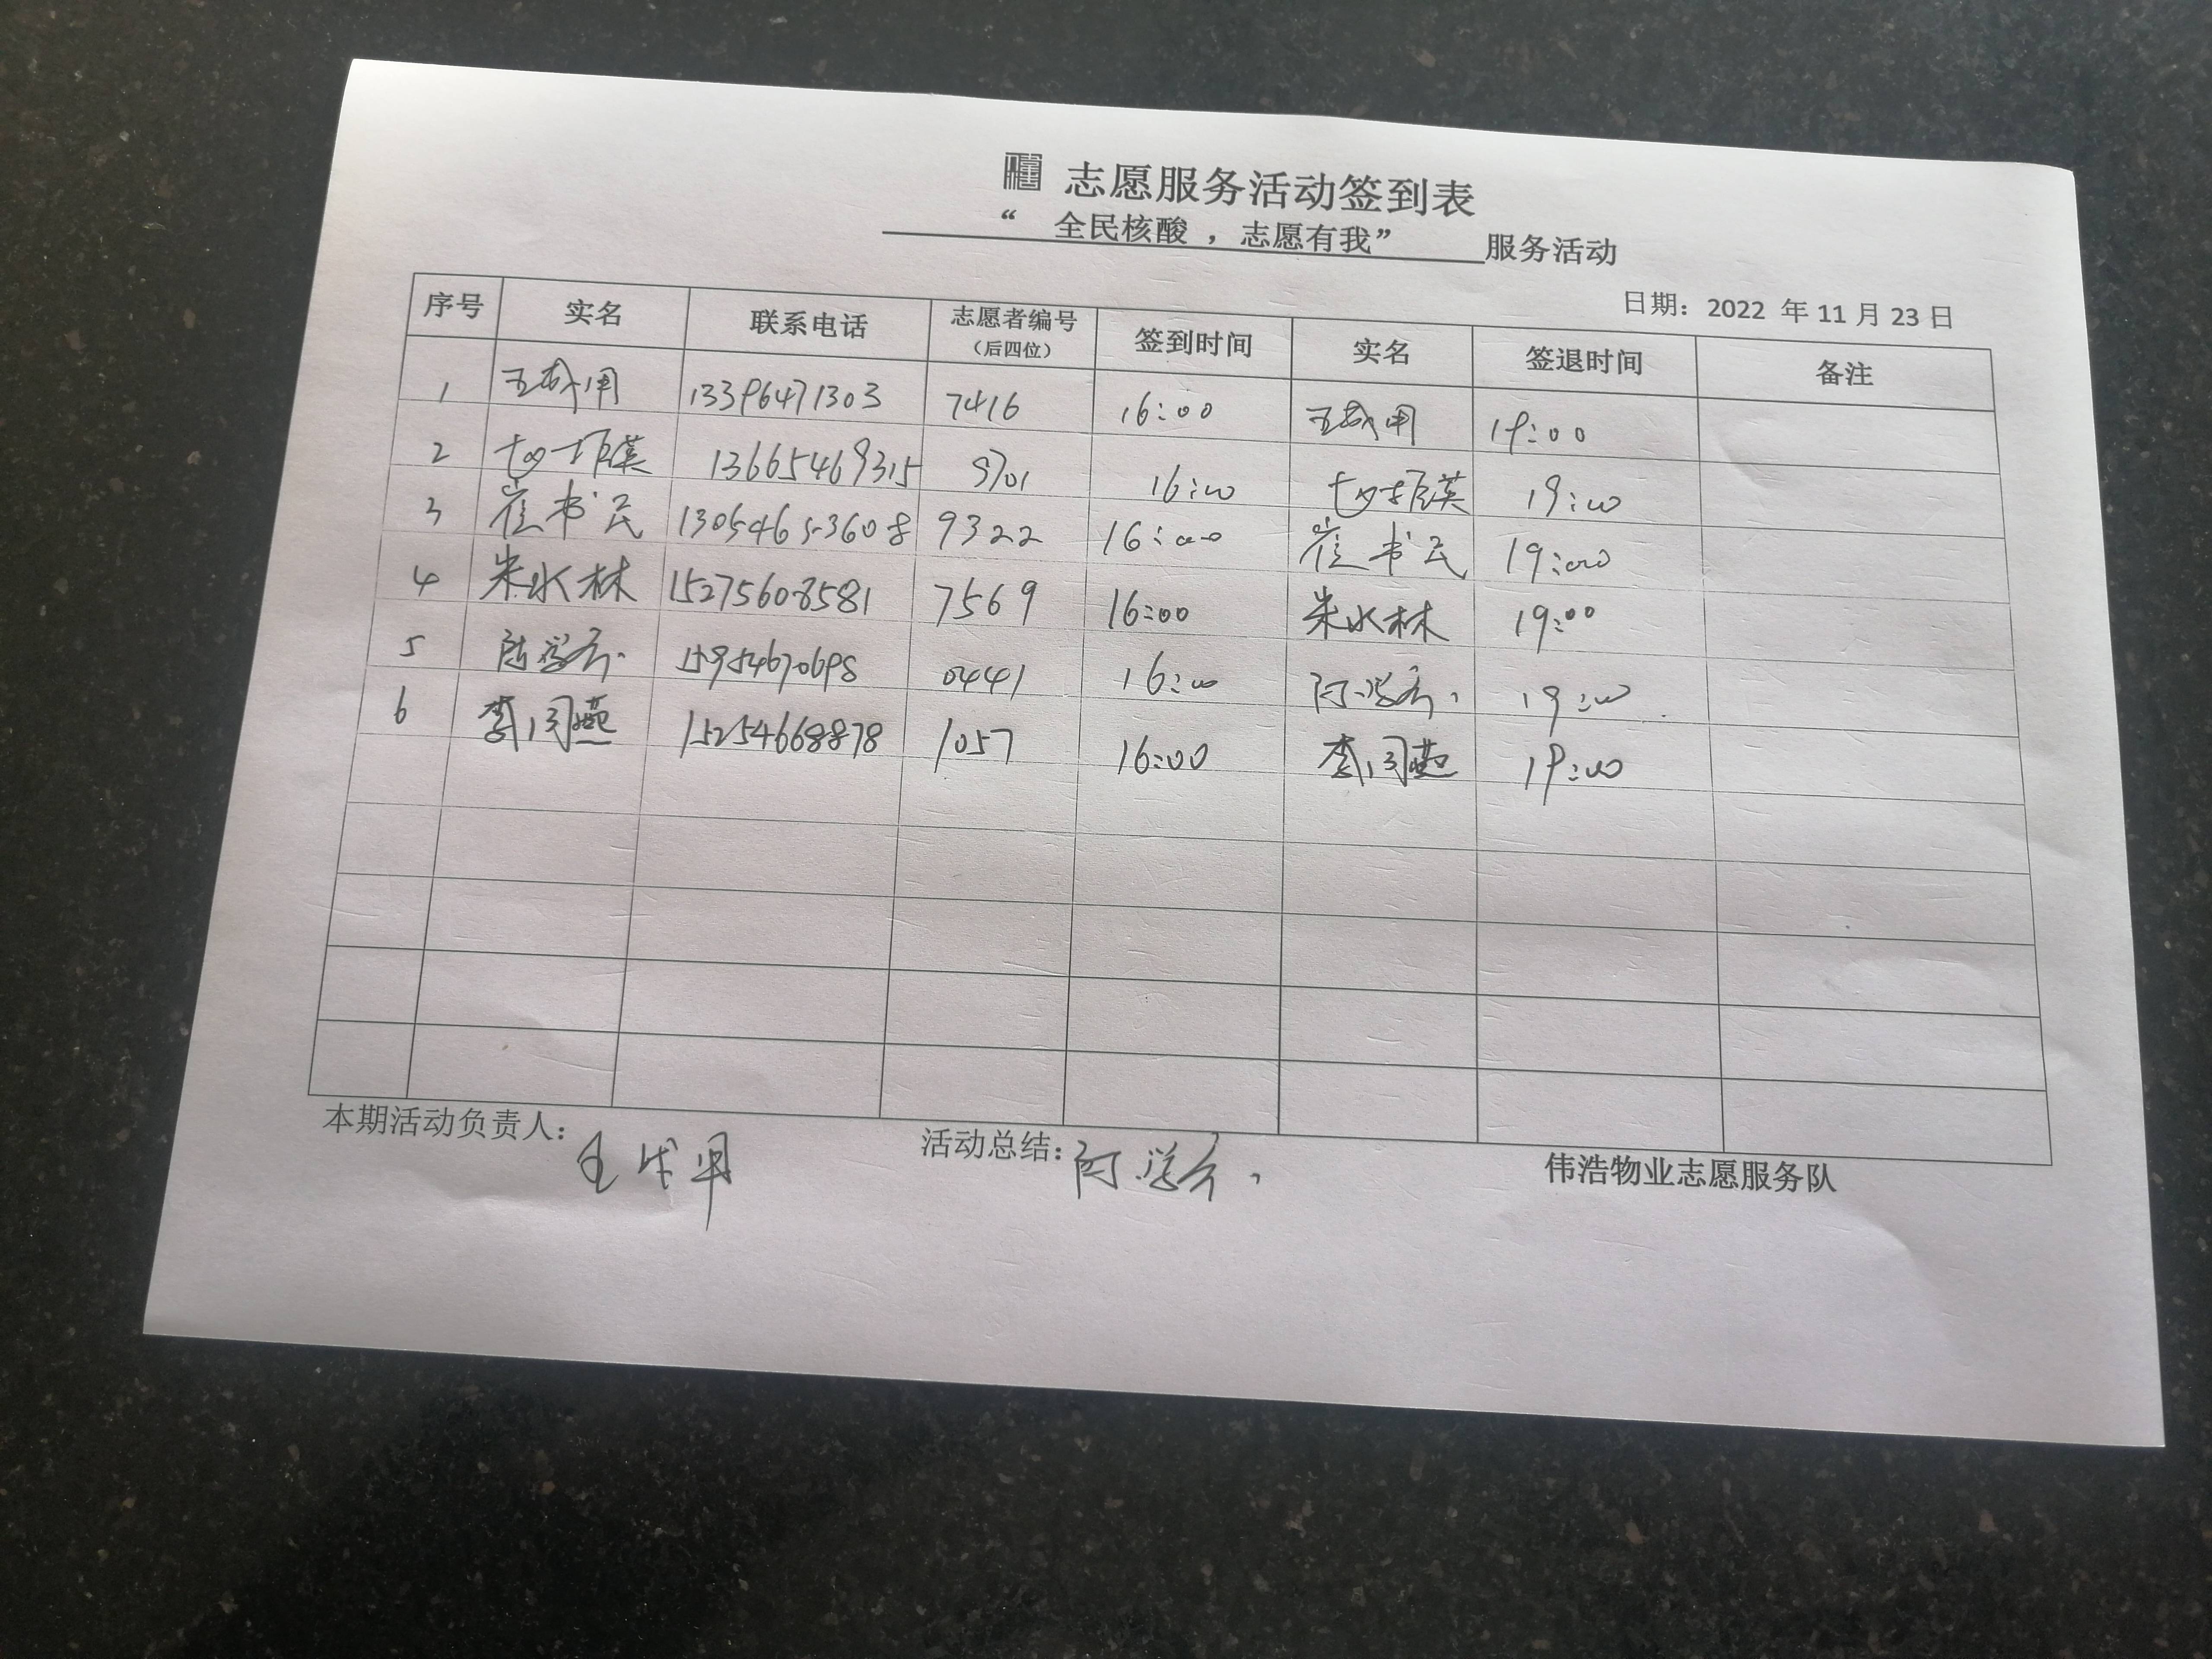 志愿服务活动签到表
“ 全民核酸 ，志愿有我” 服务活动
日期：2022 年 11 月 23 日
序号 实名 联系电话 志愿者编号（后四位） 签到时间 实名 签退时间 备注
1 13396471303 7416 16:00 19:00
2 13665469315 9701 16:00 19:00
3 崔书民 13054653608 9322 16:00 崔书民 19:00
4 朱水林 15275608581 7569 16:00 朱水林 19:00
5 0441 16:00 19:00
6 李闰燕 15254668878 1057 16:00 李闰燕 19:00
本期活动负责人： 活动总结： 伟浩物业志愿服务队